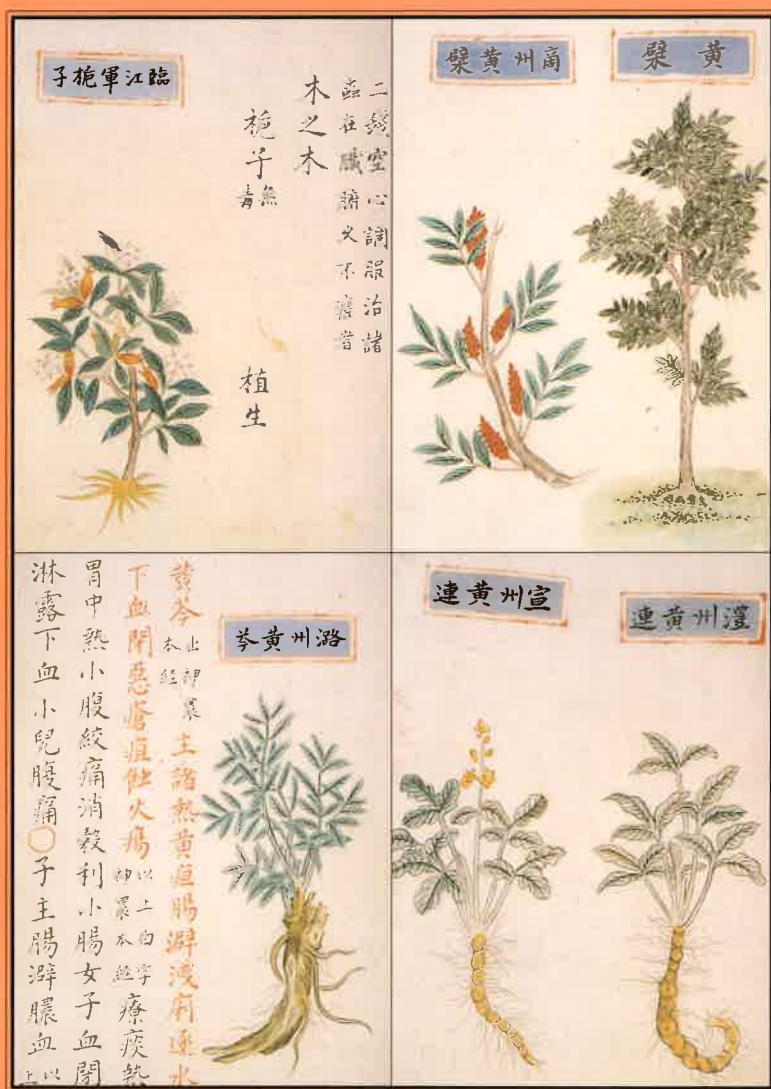 黄檗
商州黄檗
二錢空心調服治諸
蟲在臟腑久不瘥者
木之木
梔子無毒
植生
臨江軍梔子
澧州黄連
宣州黄連
潞州黄芩
黄芩出神農本經主諸熱黄疸腸澼洩痢逐水
下血閉惡瘡疽蝕火瘍以上白字神農本經療痰熱
胃中熱小腹絞痛消穀利小腸女子血閉
淋露下血小兒腹痛〇子主腸澼膿血以上